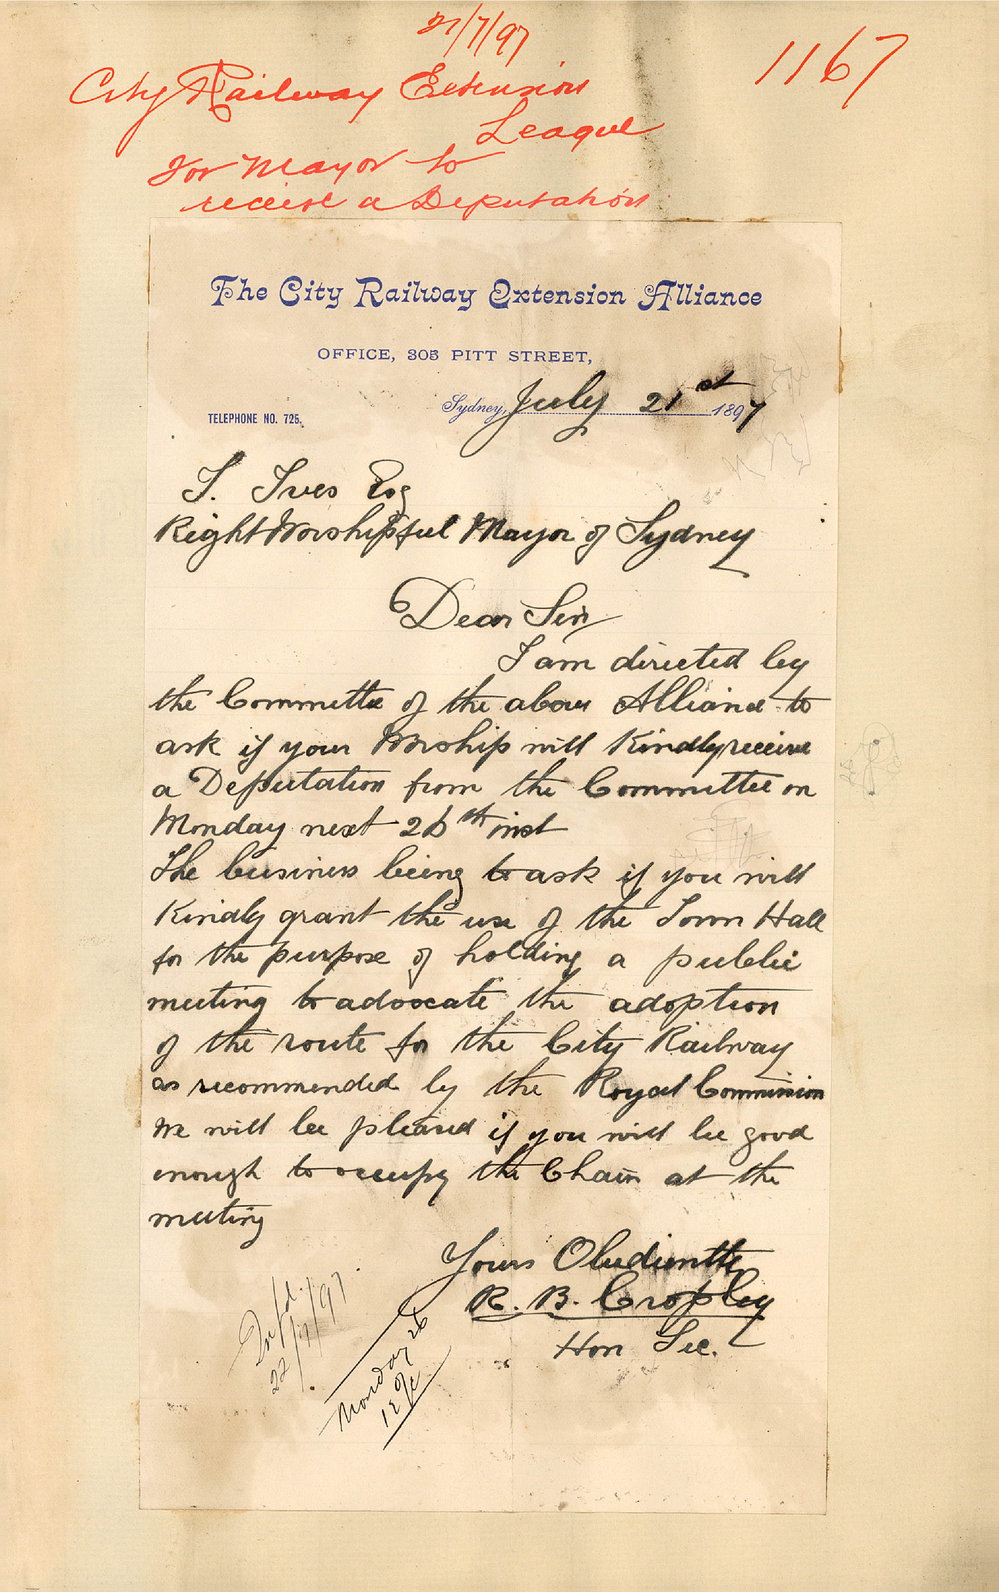 21/7/97
1167
City Railway Extension
League
for Mayor to
receive a Deputation
The City Railway Extension Alliance
OFFICE, 305 PITT STREET,
Sydney, July 21st 1897
TELEPHONE NO. 725.
I. Ives Esq
Right Worshipful Mayor of Sydney
Dear Sir
I am directed by
the Committee of the above Alliance to
ask if your Worship will Kindly receive
a Deputation from the Committee on
Monday next 26th inst
The business being to ask if you will
Kindly grant the use of the Town Hall
for the purpose of holding a public
meeting to advocate the adoption
of the route for the City Railway
as recommended by the Royal Commission
We will be pleased if you will be good
enough to occupy the Chair at the
meeting
Yours Obediently
R. B. Cropley
Hon Sec.
Infd.
22/7/97
Monday 26
12 o/c